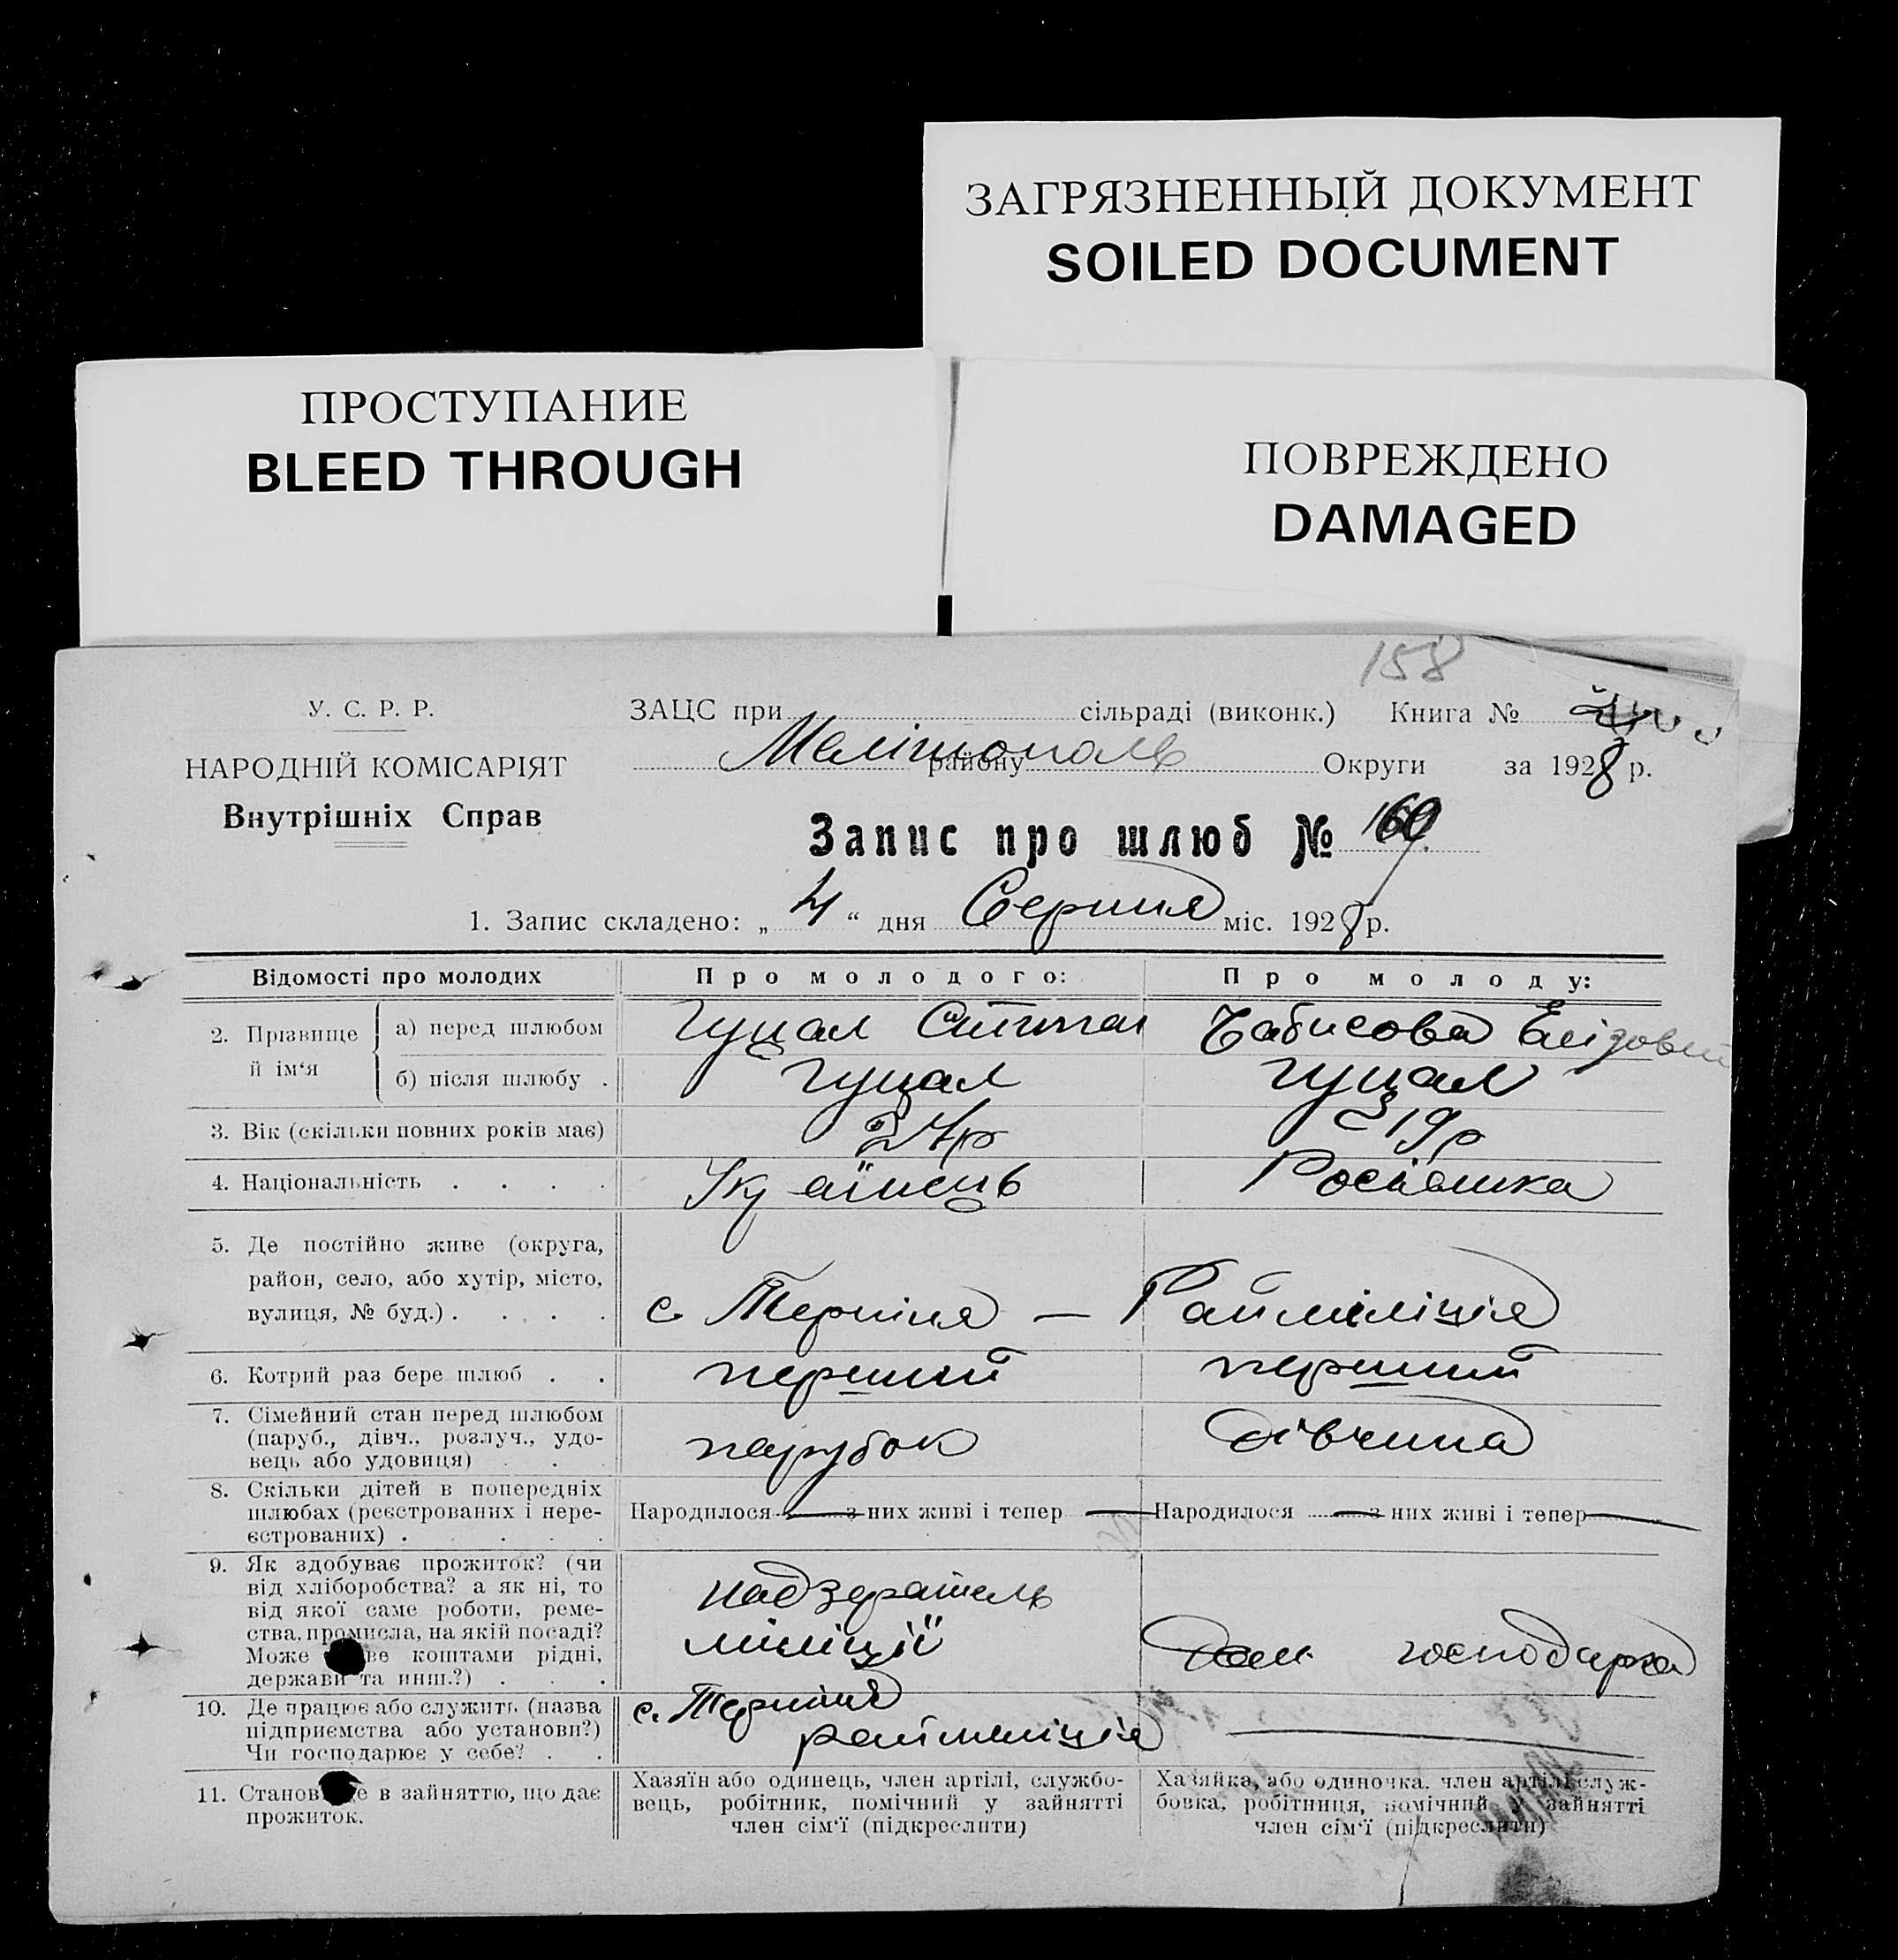 ЗАГРЯЗНЕННЫЙ ДОКУМЕНТ
SOILED DOCUMENT
ПРОСТУПАНИЕ
BLEED THROUGH
ПОВРЕЖДЕНО
DAMAGED
158
У. С. Р. Р.
НАРОДНІЙ КОМІСАРІЯТ
Внутрішніх Справ
ЗАЦС при сільраді (виконк.) Книга №
Мелітополь району Округи за 1928 р.
Запис про шлюб № 160
1. Запис складено: „ 4 “ дня Серпня міс. 1928 р.
Відомості про молодих Про молодого: Про молоду:
2. Прізвище й ім‘я
а) перед шлюбом Гуцал Степан Бабисова Елізовета
б) після шлюбу . Гуцал Гуцал
3. Вік (скільки повних років має) 24р 19р
4. Національність . . . . Українець Росіянка
5. Де постійно живе (округа,
район, село, або хутір, місто,
вулиця, № буд.) . . . . с Терпіня — Райміліція
6. Котрий раз бере шлюб . . перший перший
7. Сімейний стан перед шлюбом
(паруб., дівч., розлуч., удо-
вець або удовиця) . . . парубок дівчина
8. Скільки дітей в попередніх
шлюбах (реєстрованих і нере-
єстрованих) . . . . .
Народилося — з них живі і тепер — Народилося — з них живі і тепер —
9. Як здобуває прожиток? (чи
від хліборобства? а як ні, то
від якої саме роботи, реме-
ства, промисла, на якій посаді?
Може ве коштами рідні,
держави та инш.?) . . .
надзератель
міліції
Дом. господарка
10. Де працює або служить (назва
підприємства або установи?)
Чи господарює у себе? . .
с. Терпіня
райміліція —
11. Станов е в зайняттю, що дає
прожиток.
Хазяїн або одинець, член артілі, службо-
вець, робітник, помічний у зайнятті
член сім‘ї (підкреслити)
Хазяйка, або одиночка, член артілі служ-
бовка, робітниця, помічний у зайнятті
член сім‘ї (підкреслити)